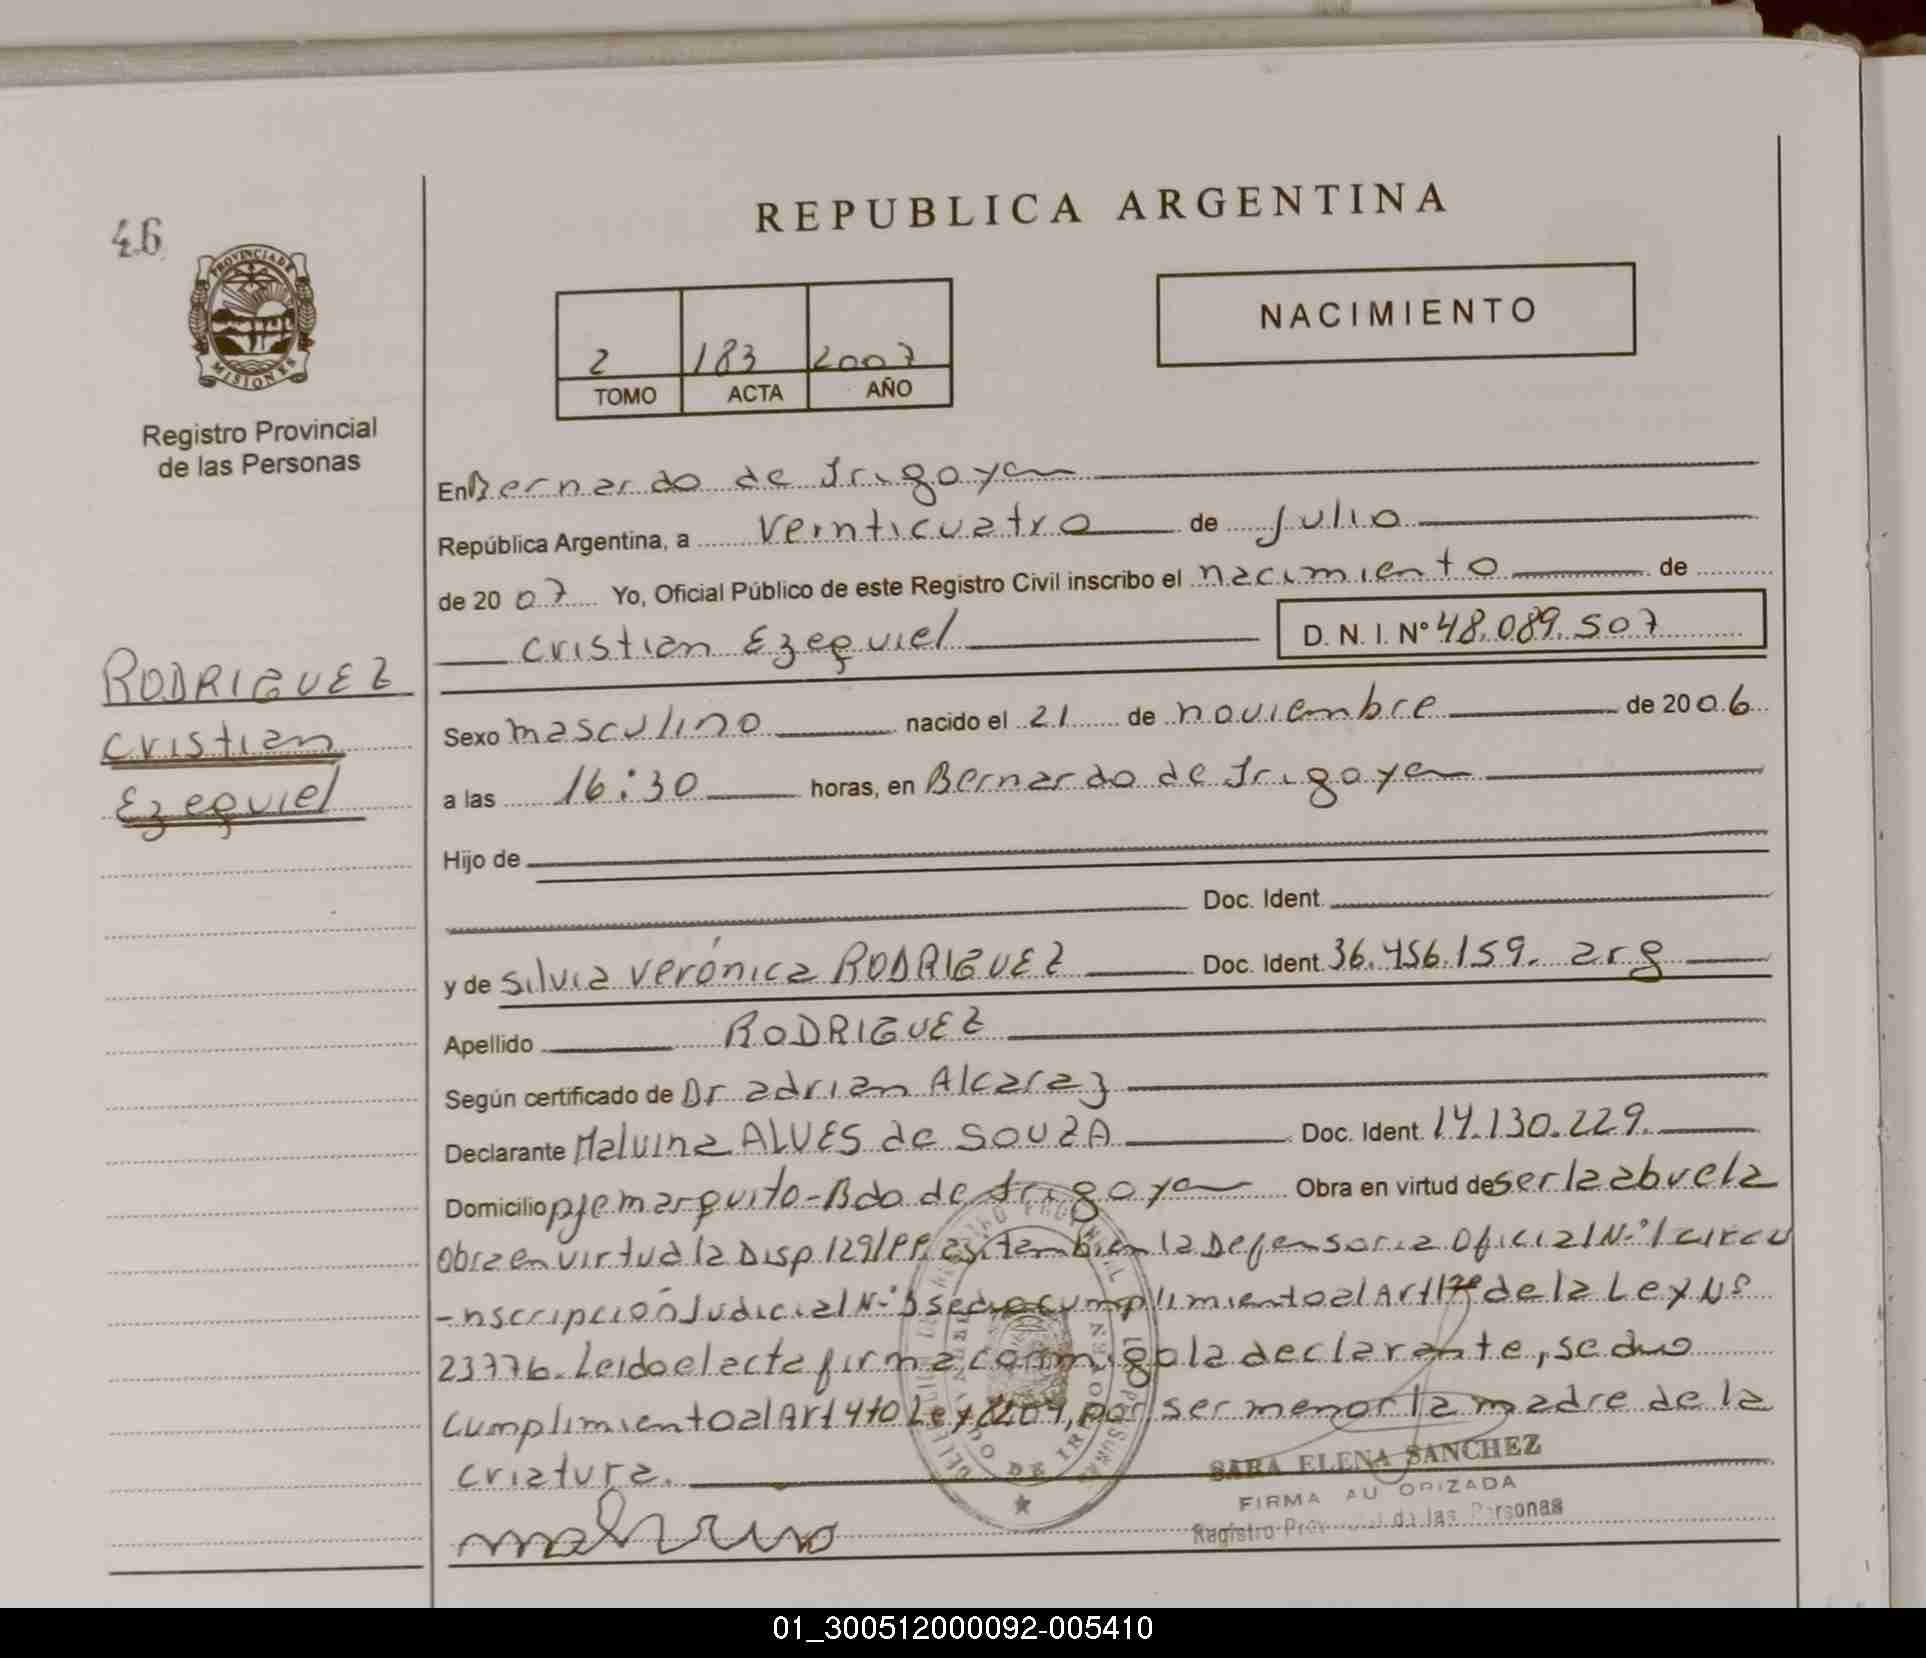 REPUBLICA ARGENTINA
46
PROVINCIA DE
MISIONES
NACIMIENTO
2 183 2007
TOMO ACTA AÑO
Registro Provincial
de las Personas
En Bernardo de Irigoyen
República Argentina, a Veinticuatro de Julio
de 2007 Yo, Oficial Público de este Registro Civil inscribo el nacimiento de
Cristian Ezequiel D. N. I. Nº 48.089.507
RODRIGUEZ
Cristian
Ezequiel
Sexo masculino nacido el 21 de noviembre de 2006
a las 16:30 horas, en Bernardo de Irigoyen
Hijo de
Doc. Ident.
y de Silvia Verónica RODRIGUEZ Doc. Ident. 36.456.159. arg
Apellido RODRIGUEZ
Según certificado de Dr adrian Alcaraz
Declarante Malvina ALVES de SOUZA Doc. Ident. 14.130.229.
Domicilio pje marquito-Bdo de Irigoyen Obra en virtud de ser la abuela
Obra en virtud la Disp 129/PP. así tambien la Defensoria Oficial N-º1 circu
-nscripción Judicial N-º3 se dio cumplimiento al Art 12º de la Ley Nº
23776. Leido el acta firma conmigo la declarante, se dio
cumplimiento al Art 4to Ley por ser menor la madre de la
criatura.
SARA ELENA SANCHEZ
FIRMA AUTORIZADA
Registro Provincial de las Personas
01_300512000092-005410